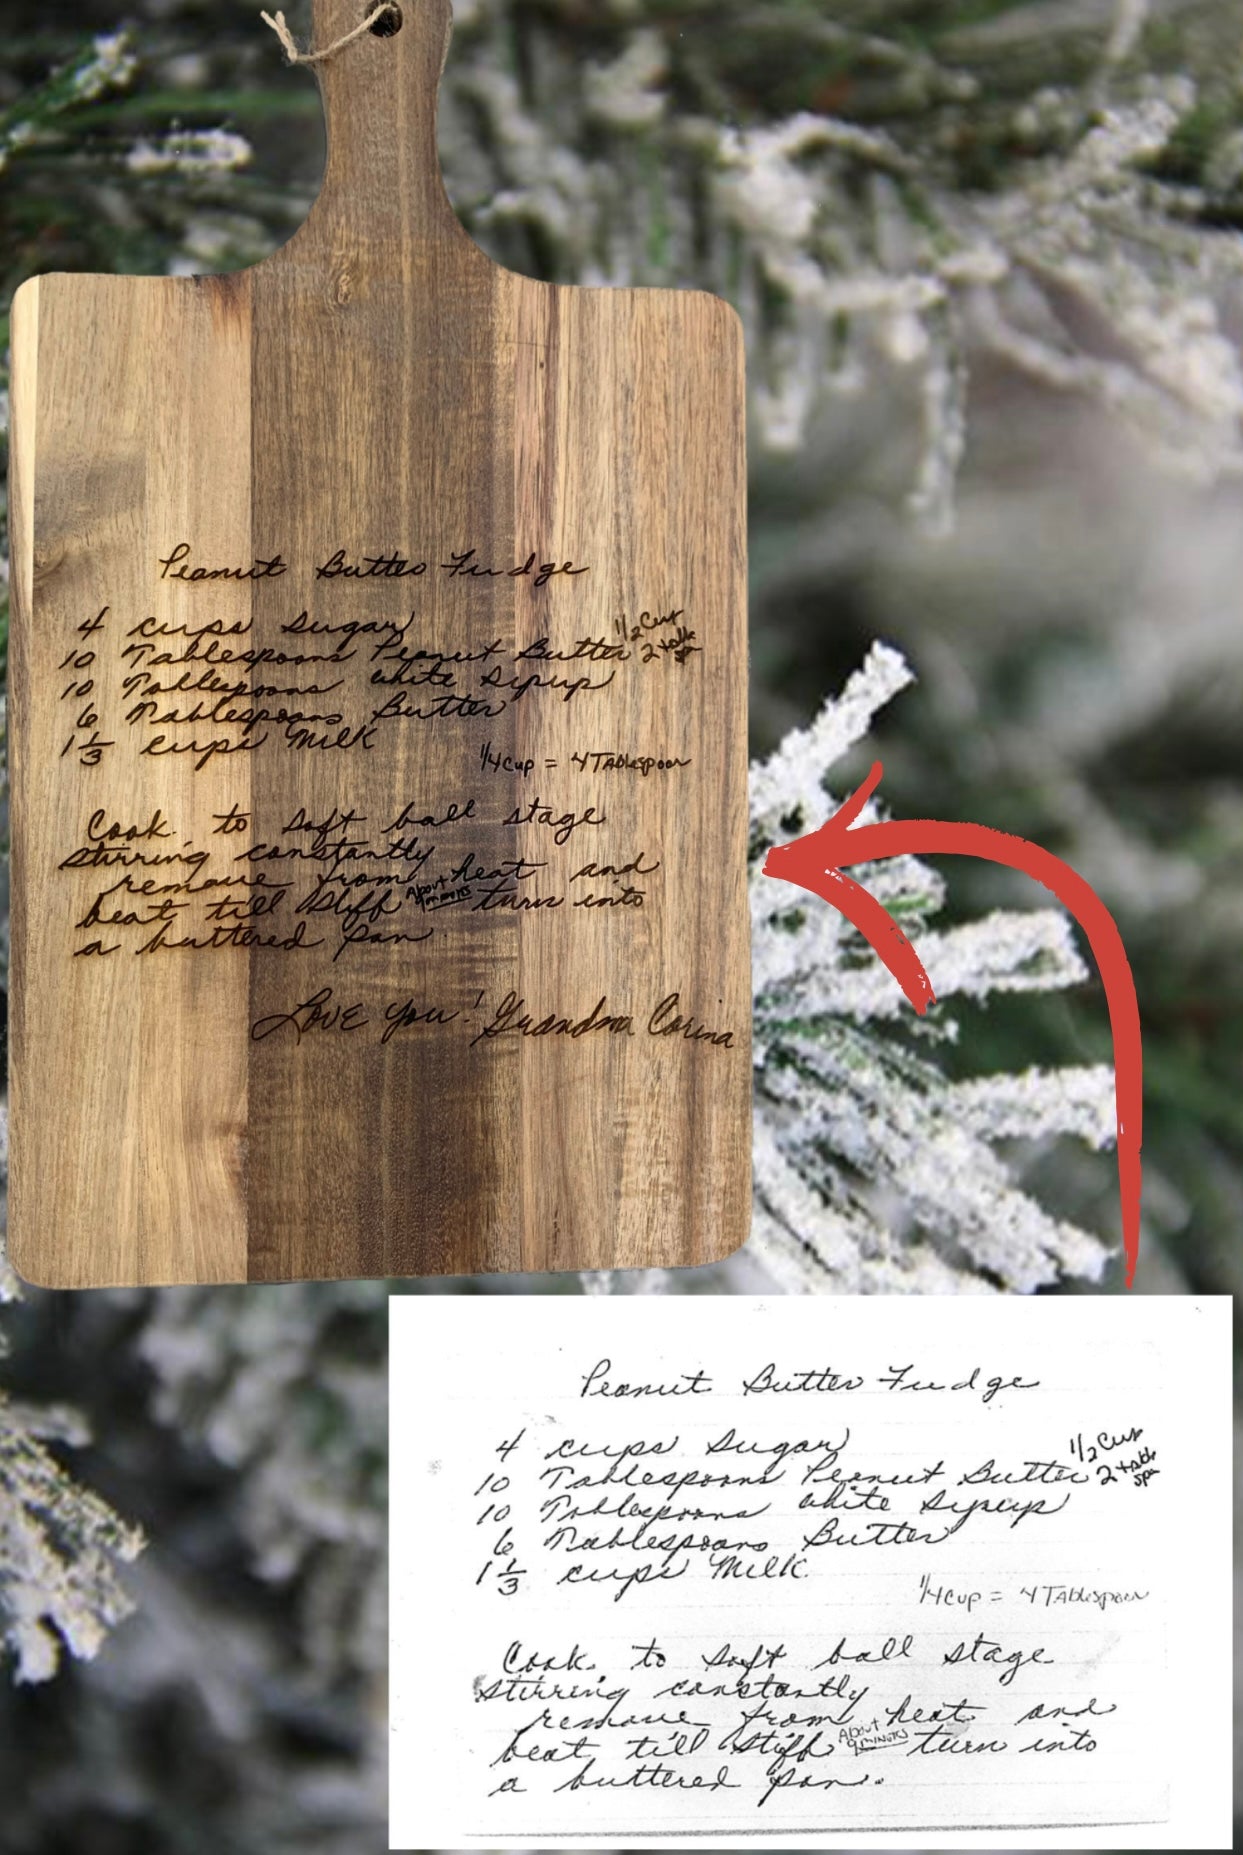 Peanut Butter Fudge
4 cups sugar
10 Tablespoons Peanut Butter 1/2 Cup
2 table
spn
10 Tablespoons white syrup
6 Tablespoons Butter
1 1/3 cups Milk
1/4 cup = 4 Tablespoon
Cook to soft ball stage
stirring constantly
remove from heat and
beat till stiff About 9 minutes turn into
a buttered pan.
Love you! Grandma Corina
Peanut Butter Fudge
4 cups sugar
10 Tablespoons Peanut Butter 1/2 Cup
2 table
spn
10 Tablespoons white syrup
6 Tablespoons Butter
1 1/3 cups Milk.
1/4 cup = 4 Tablespoon
Cook. to soft ball stage
stirring constantly
remove from heat and
beat till stiff About 9 minutes turn into
a buttered pan.